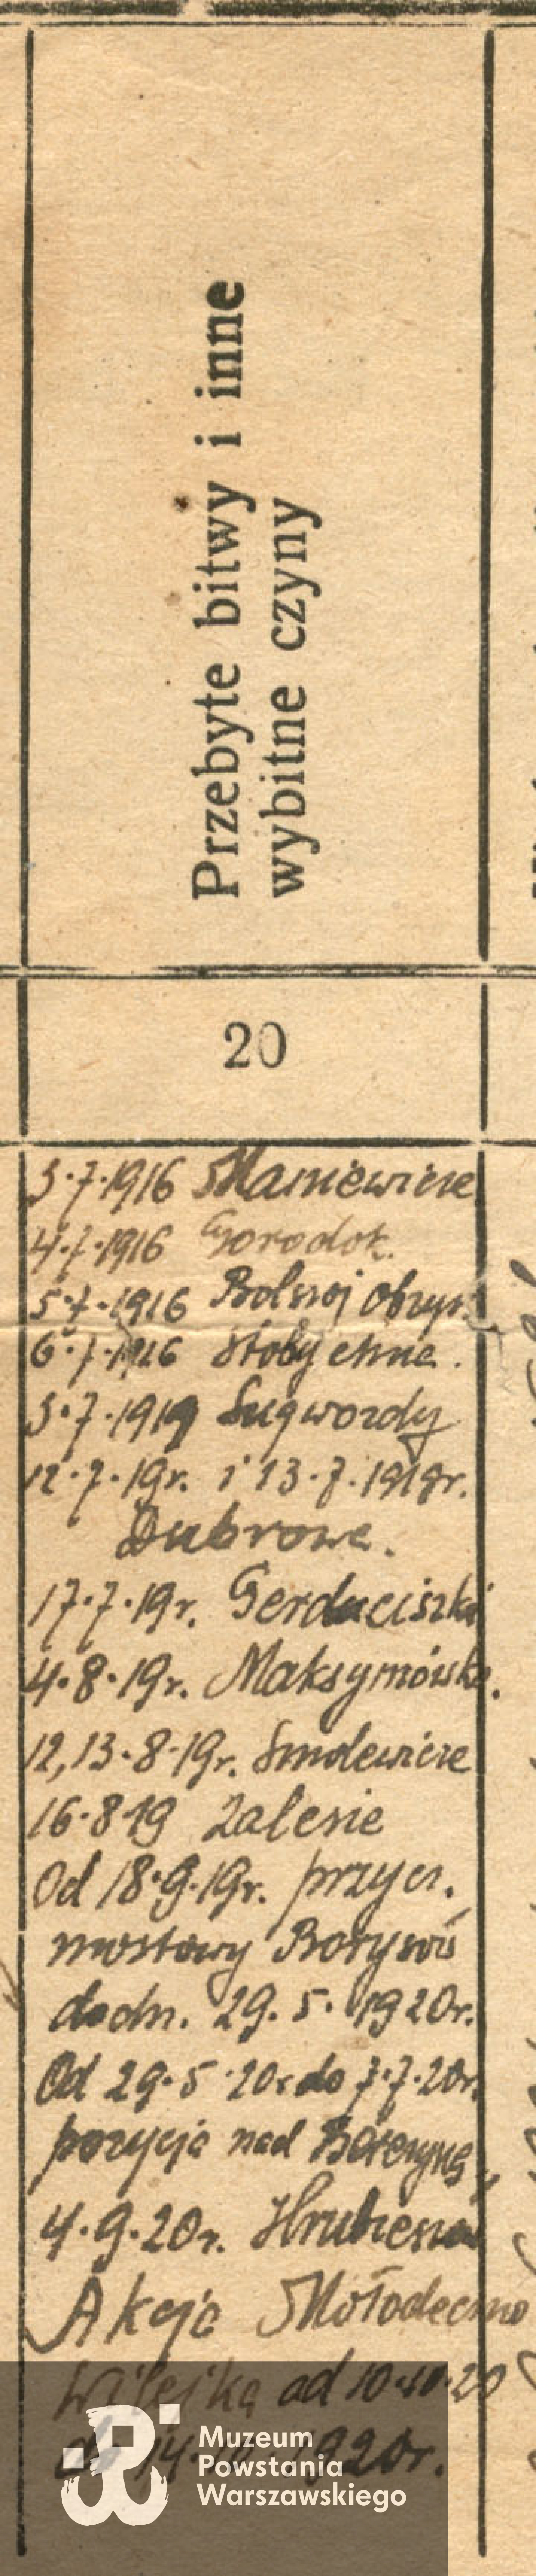 Przebyte bitwy i inne
wybitne czyny
20
3.7.1916 Maniewicze
4.7.1916 Gorodok.
5.7.1916 Bolszoj Obzyr.
6.7.1916 Stobychwa.
3.7.1919
12.7.19r. i 13.7.1919r.
Dubrowa.
17.7.19r. Gerduciszki
4.8.19r. Maksymówka.
12,13.8.19r. Smolewicze
16.8.19 Zalesie
Od 18.9.19r. przycz.
mostowy Borysów
do dn. 29.5.1920r.
Od 29.5.20r do 7.7.20r.
pozycja nad Berezyną,
4.9.20r. Hrubieszów
Akcja Mołodeczno
Wilejka od 10.10.20
do 14. 1920r.
Muzeum
Powstania
Warszawskiego